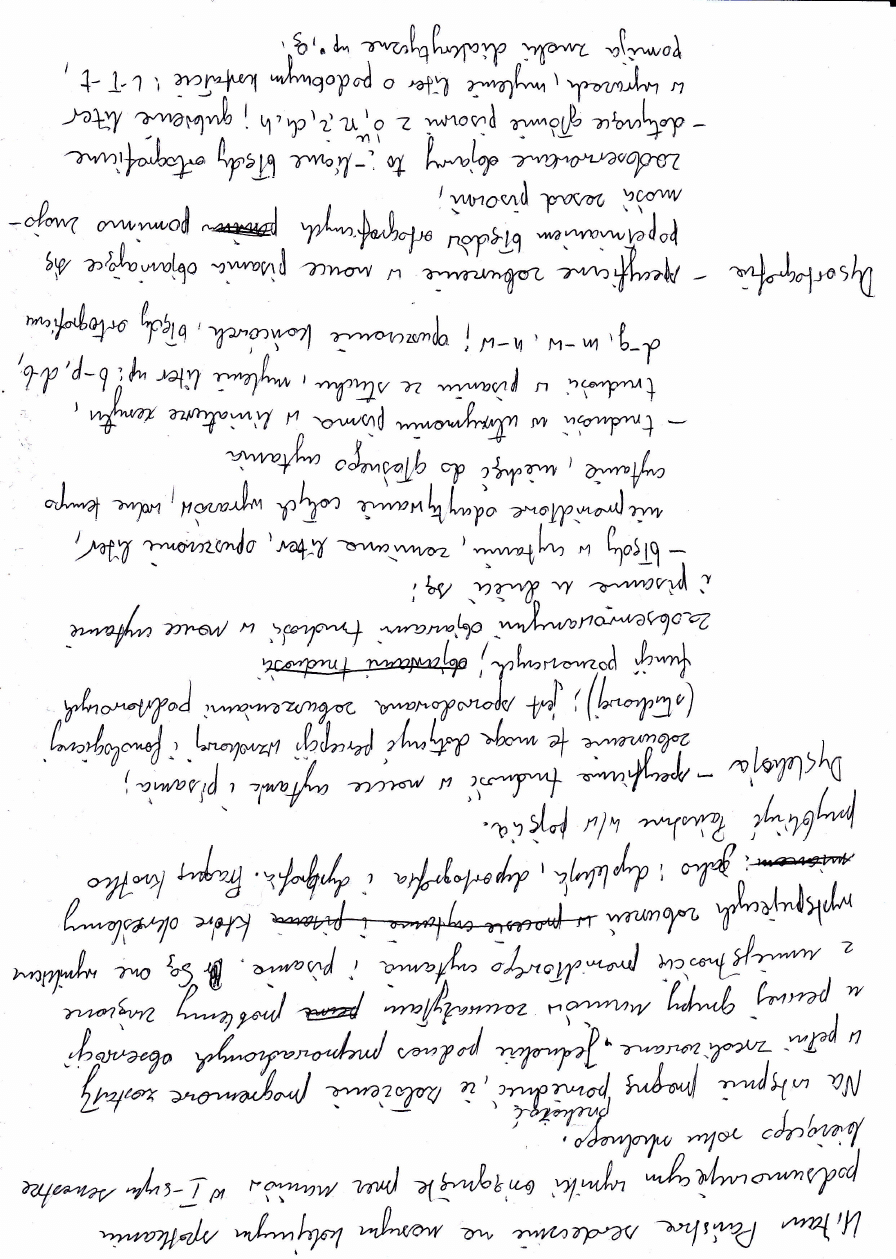 Witam Państwa serdecznie na naszym kolejnym spotkaniu
podsumowującym wyniki osiągnięte przez uczniów w I-szym semestrze
bieżącego roku szkolnego.
Na wstępie pragnę powiedzieć, że założenia programowe zostały
przekazać
w pełni zrealizowane. Jednakże podczas przeprowadzonych obserwacji
u pewnej grupy uczniów zauważyłam pewne problemy związane
z umiejętnością prawidłowego czytania i pisania. Są one wynikiem
występujących zaburzeń w procesie czytania i pisania które określamy
jako: dysleksją, dysortografia i dysgrafia. Pragnę krótko
przybliżyć Państwu w/w pojęcia.
Dysleksja – specyficzne trudność w nauce czytania i pisania;
zaburzenia te mogą dotyczyć percepcji wzrokowej i fonologicznej
(słuchowej); jest spowodowana zaburzeniami podstawowych
funkcji poznawczych; objawami trudności
zaobserwowanymi objawami trudność w nauce czytania
i pisania u dzieci są:
– błędy w czytaniu, zamiana liter, opuszczanie liter,
nieprawidłowe odczytywanie całych wyrazów, wolne tempo
czytania, niechęć do głośnego czytania
– trudności w utrzymaniu pisma w liniaturze zeszytu,
trudności w pisaniu ze słuchu, mylenie liter np: b-p, d-b,
d-g, m-w, n-w; opuszczanie końcówek, błędy ortograficzne
Dysortografia – specyficzne zaburzenie w nauce pisania objawiające się
popełnianiem błędów ortograficznych pomimo pomimo znajo-
mości zasad pisowni;
zaobserwowane objawy to: – liczne błędy ortograficzne
– dotyczące głównie pisowni z ó, u, rz, ż, ch, h; gubienie liter
w wyrazach, mylenie liter o podobnym kształcie: l-ł-t,
pomija znaki diakrytyczne np. ą.